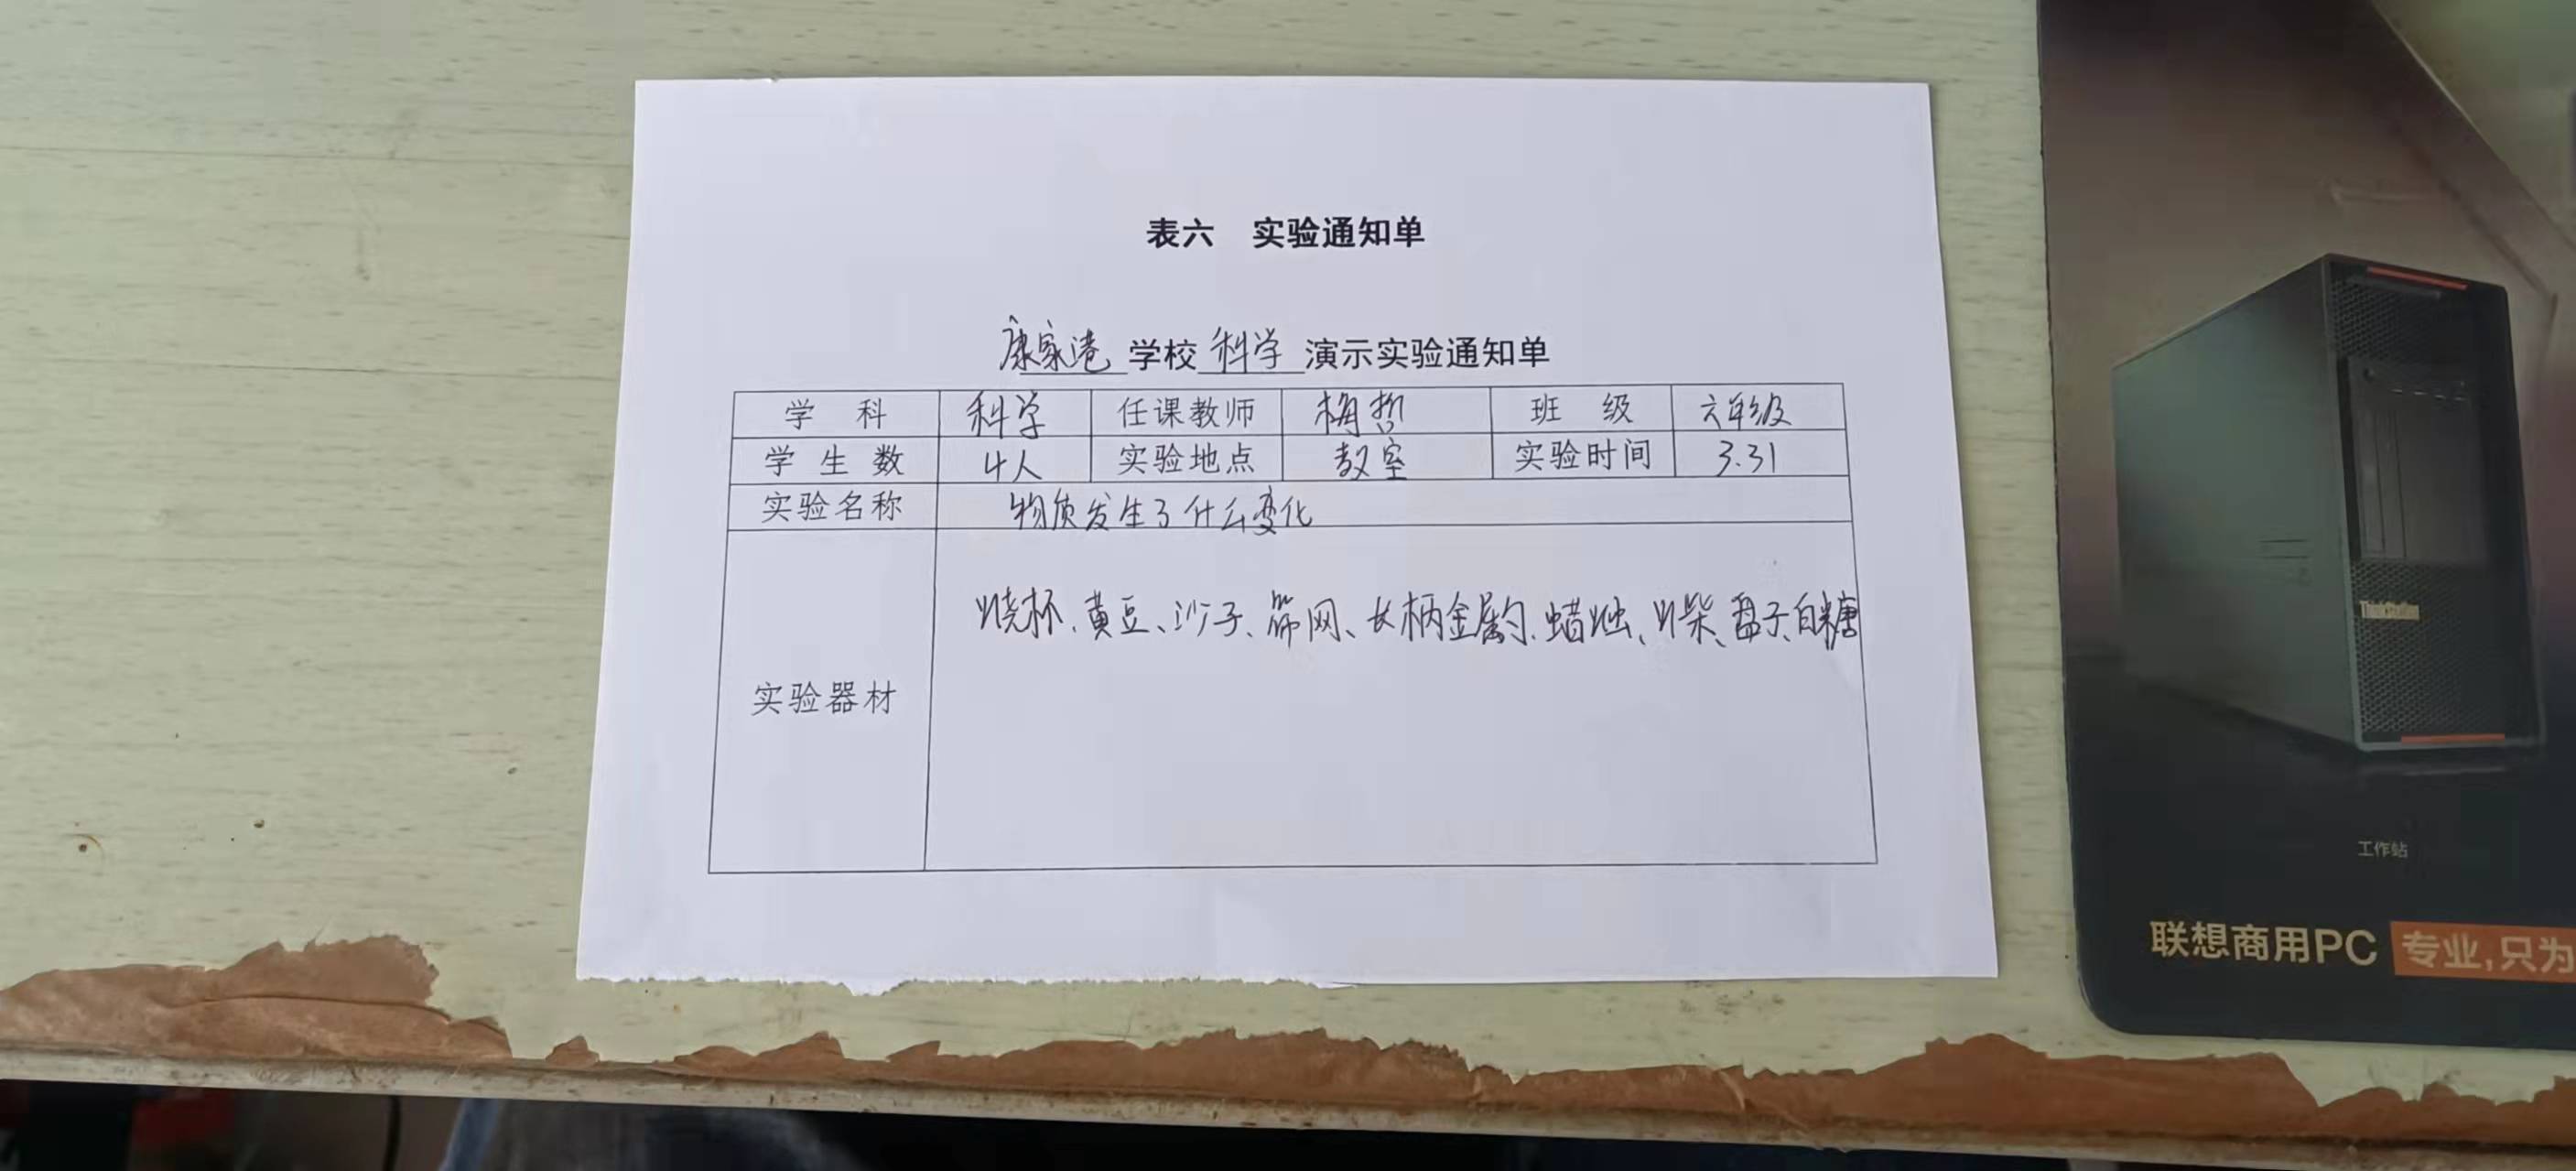 表六 实验通知单
康家港 学校 科学 演示实验通知单
学科 科学 任课教师 梅哲 班级 六年级
学生数 4人 实验地点 教室 实验时间 3.31
实验名称 物质发生了什么变化
烧杯、黄豆、沙子、筛网、长柄金属勺、蜡烛、火柴、盘子、白糖
实验器材
ThinkStation
工作站
联想商用PC 专业,只为